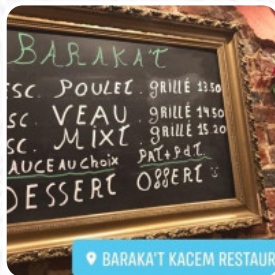 BARAKA'T
ESC. POULET. gRILLÉ 13.50
ESC. VEAU. gRILLÉ 14.50
ESC. MIXT. gRILLÉ 15.20
SAUCE AU choix PAT+P.d.T.
DESSERT OffERT
BARAKA'T KACEM RESTAUR